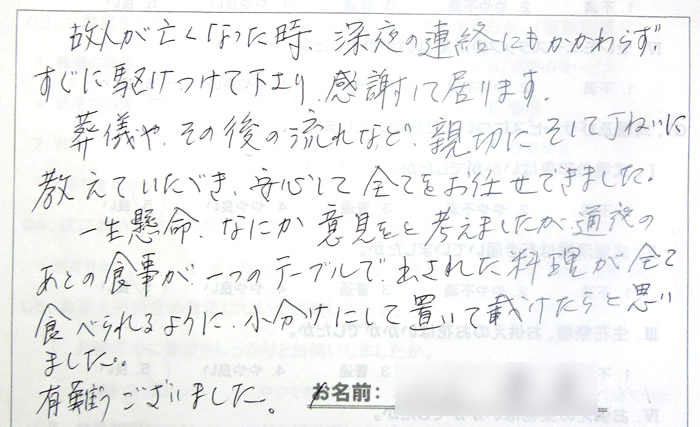 故人が亡くなった時、深夜の連絡にもかかわらず、
すぐに駆けつけて下さり、感謝して居ります。
葬儀や、その後の流れなど、親切にそして丁ねいに
教えていただき、安心して全てをお任せできました。
一生懸命、なにか意見をと考えましたが、通夜の
あとの食事が一つのテーブルで、出された料理が全て
食べられるように、小分けにして置いて戴けたらと思い
ました。
有難うございました。
お名前: